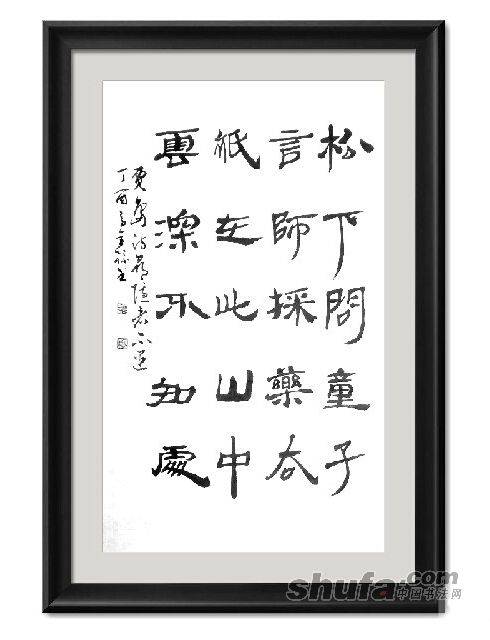 松下問童子
言師採藥去
祇在此山中
雲深不知處
賈島詩尋隱者不遇
丁酉
shufa.com
中国书法网